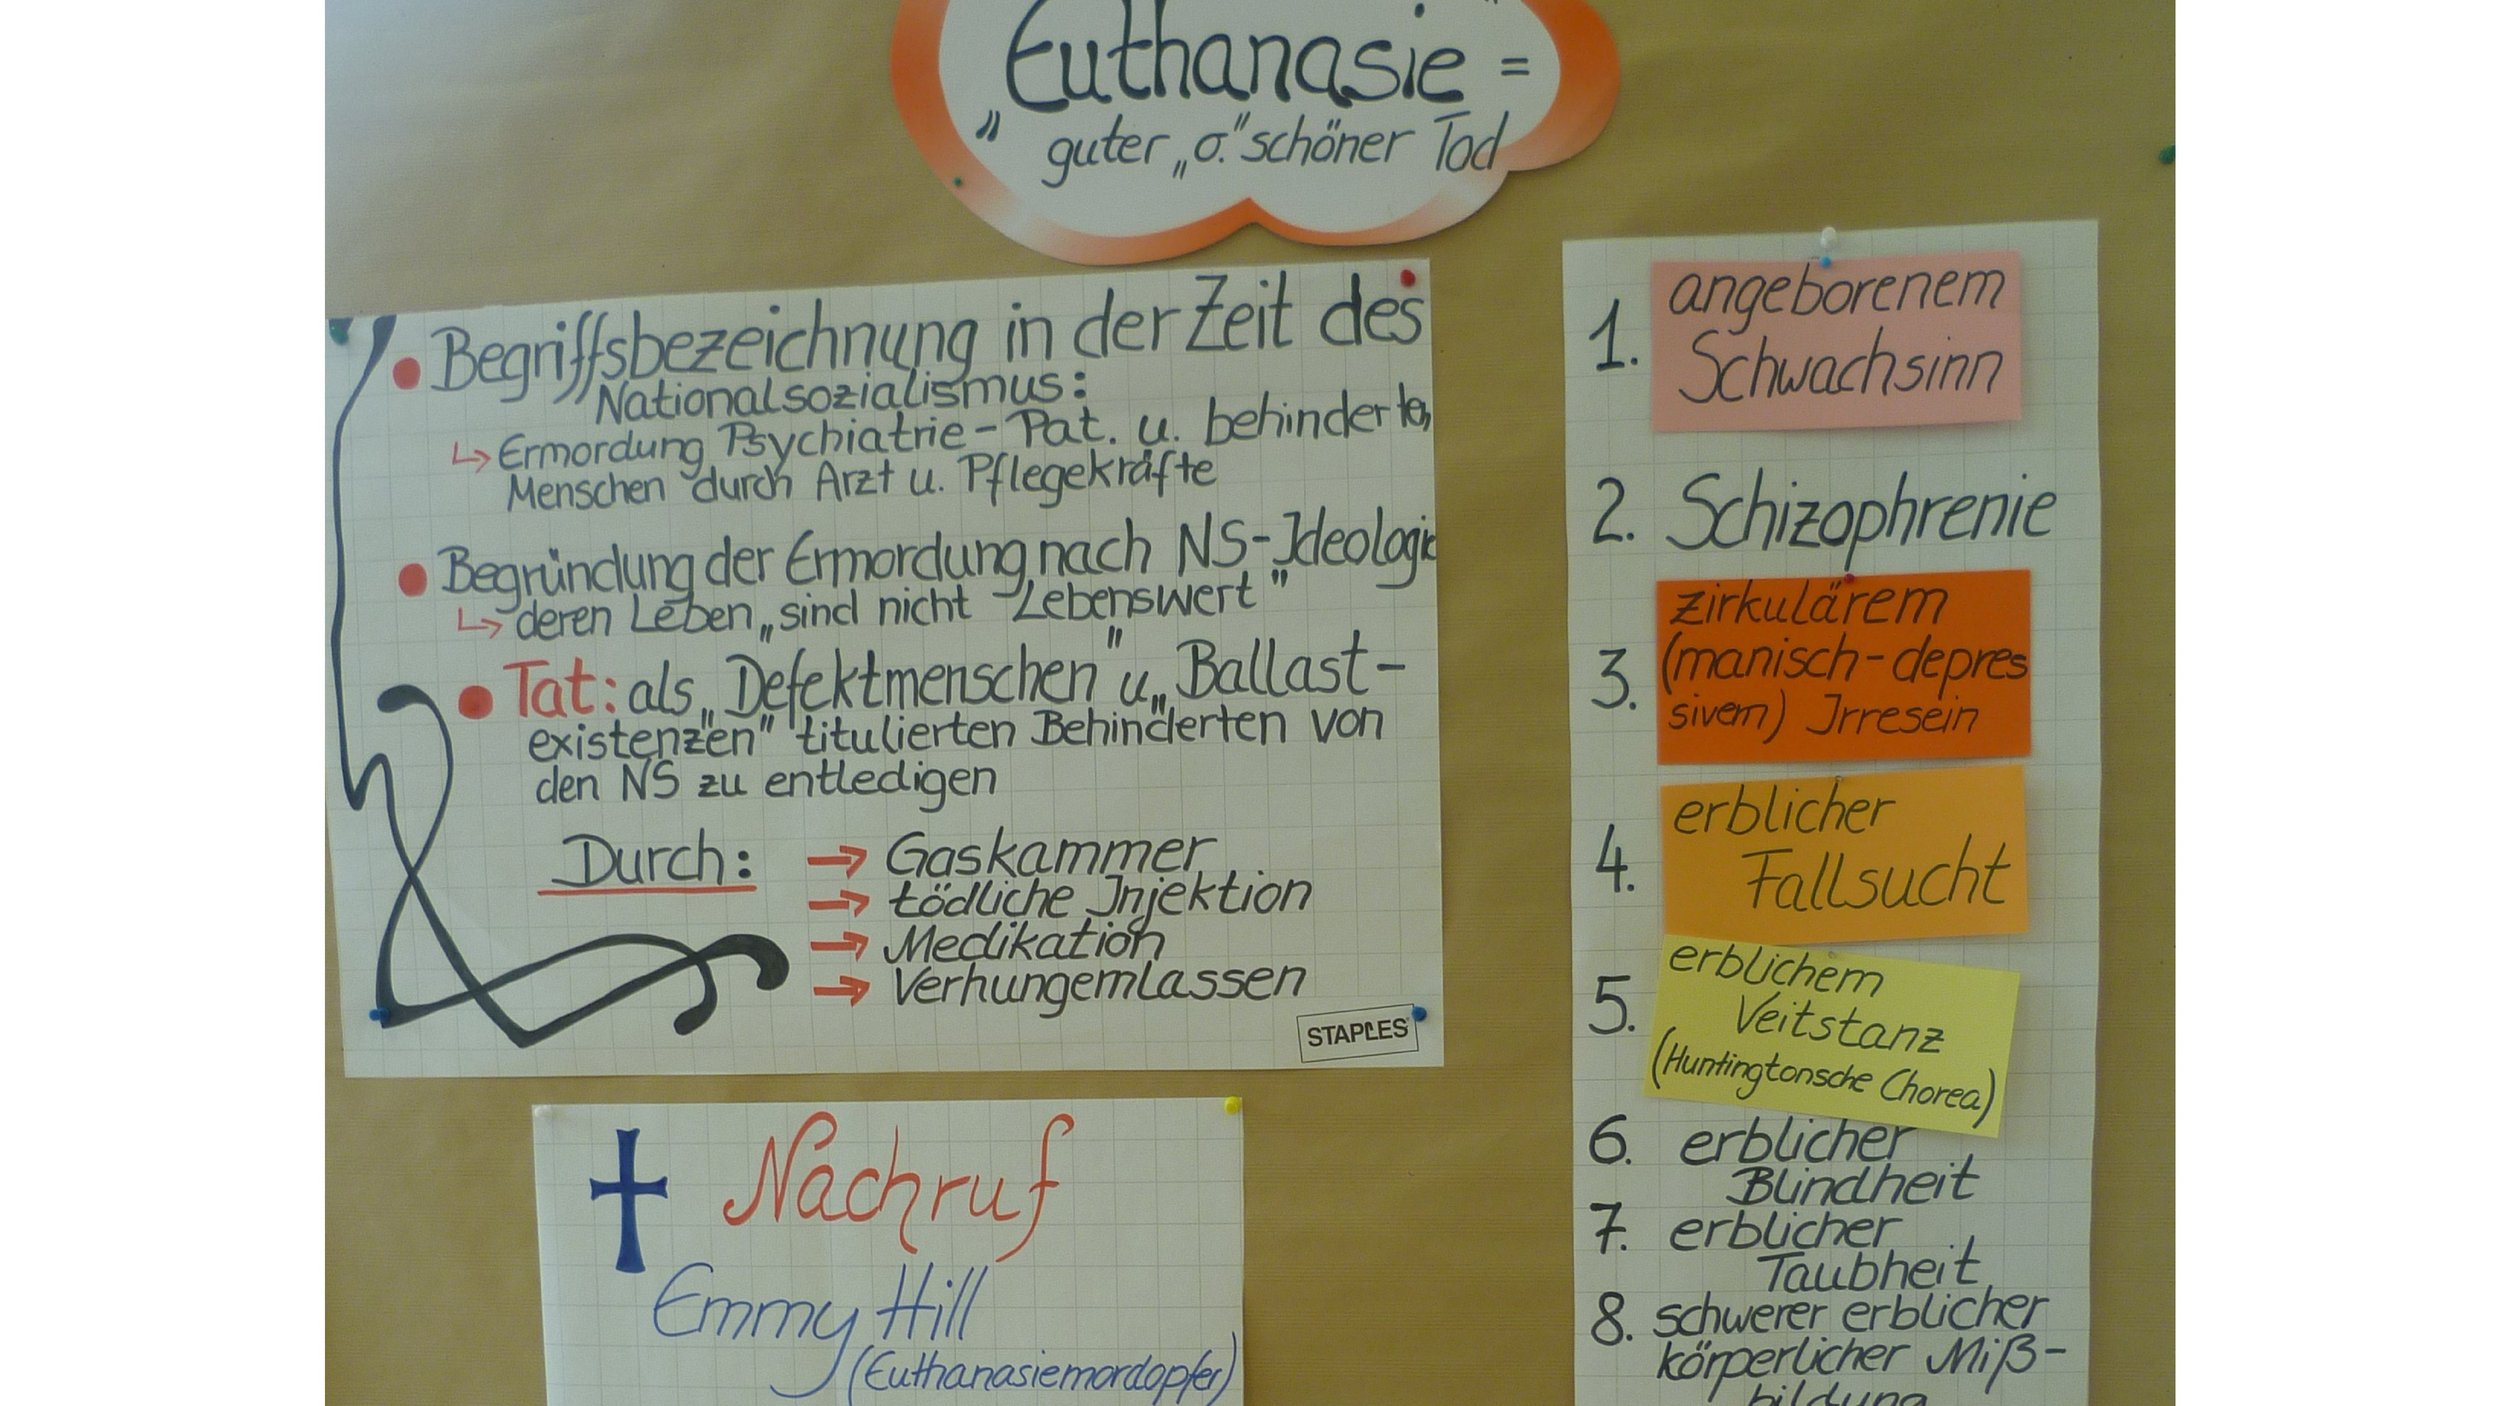 Euthanasie" =
" guter „o." schöner Tod
• Begriffsbezeichnung in der Zeit des
Nationalsozialismus:
↳ Ermordung Psychiatrie-Pat. u. behinderten
Menschen durch Arzt u. Pflegekräfte
• Begründung der Ermordung nach NS-Ideologie
↳ deren Leben „sind nicht Lebenswert"
• Tat: als „Defektmenschen" u. „Ballast-
existenzen" titulierten Behinderten von
den NS zu entledigen
Durch: → Gaskammer
→ tödliche Injektion
→ Medikation
→ Verhungernlassen
STAPLES
Nachruf
Emmy Hill
(Euthanasiemordopfer)
1. angeborenem
Schwachsinn
2. Schizophrenie
3. zirkulärem
(manisch-depres
sivem) Irresein
4. erblicher
Fallsucht
5. erblichem
Veitstanz
(Huntingtonsche Chorea)
6. erblicher
Blindheit
7. erblicher
Taubheit
8. schwerer erblicher
körperlicher Miß-
bildung